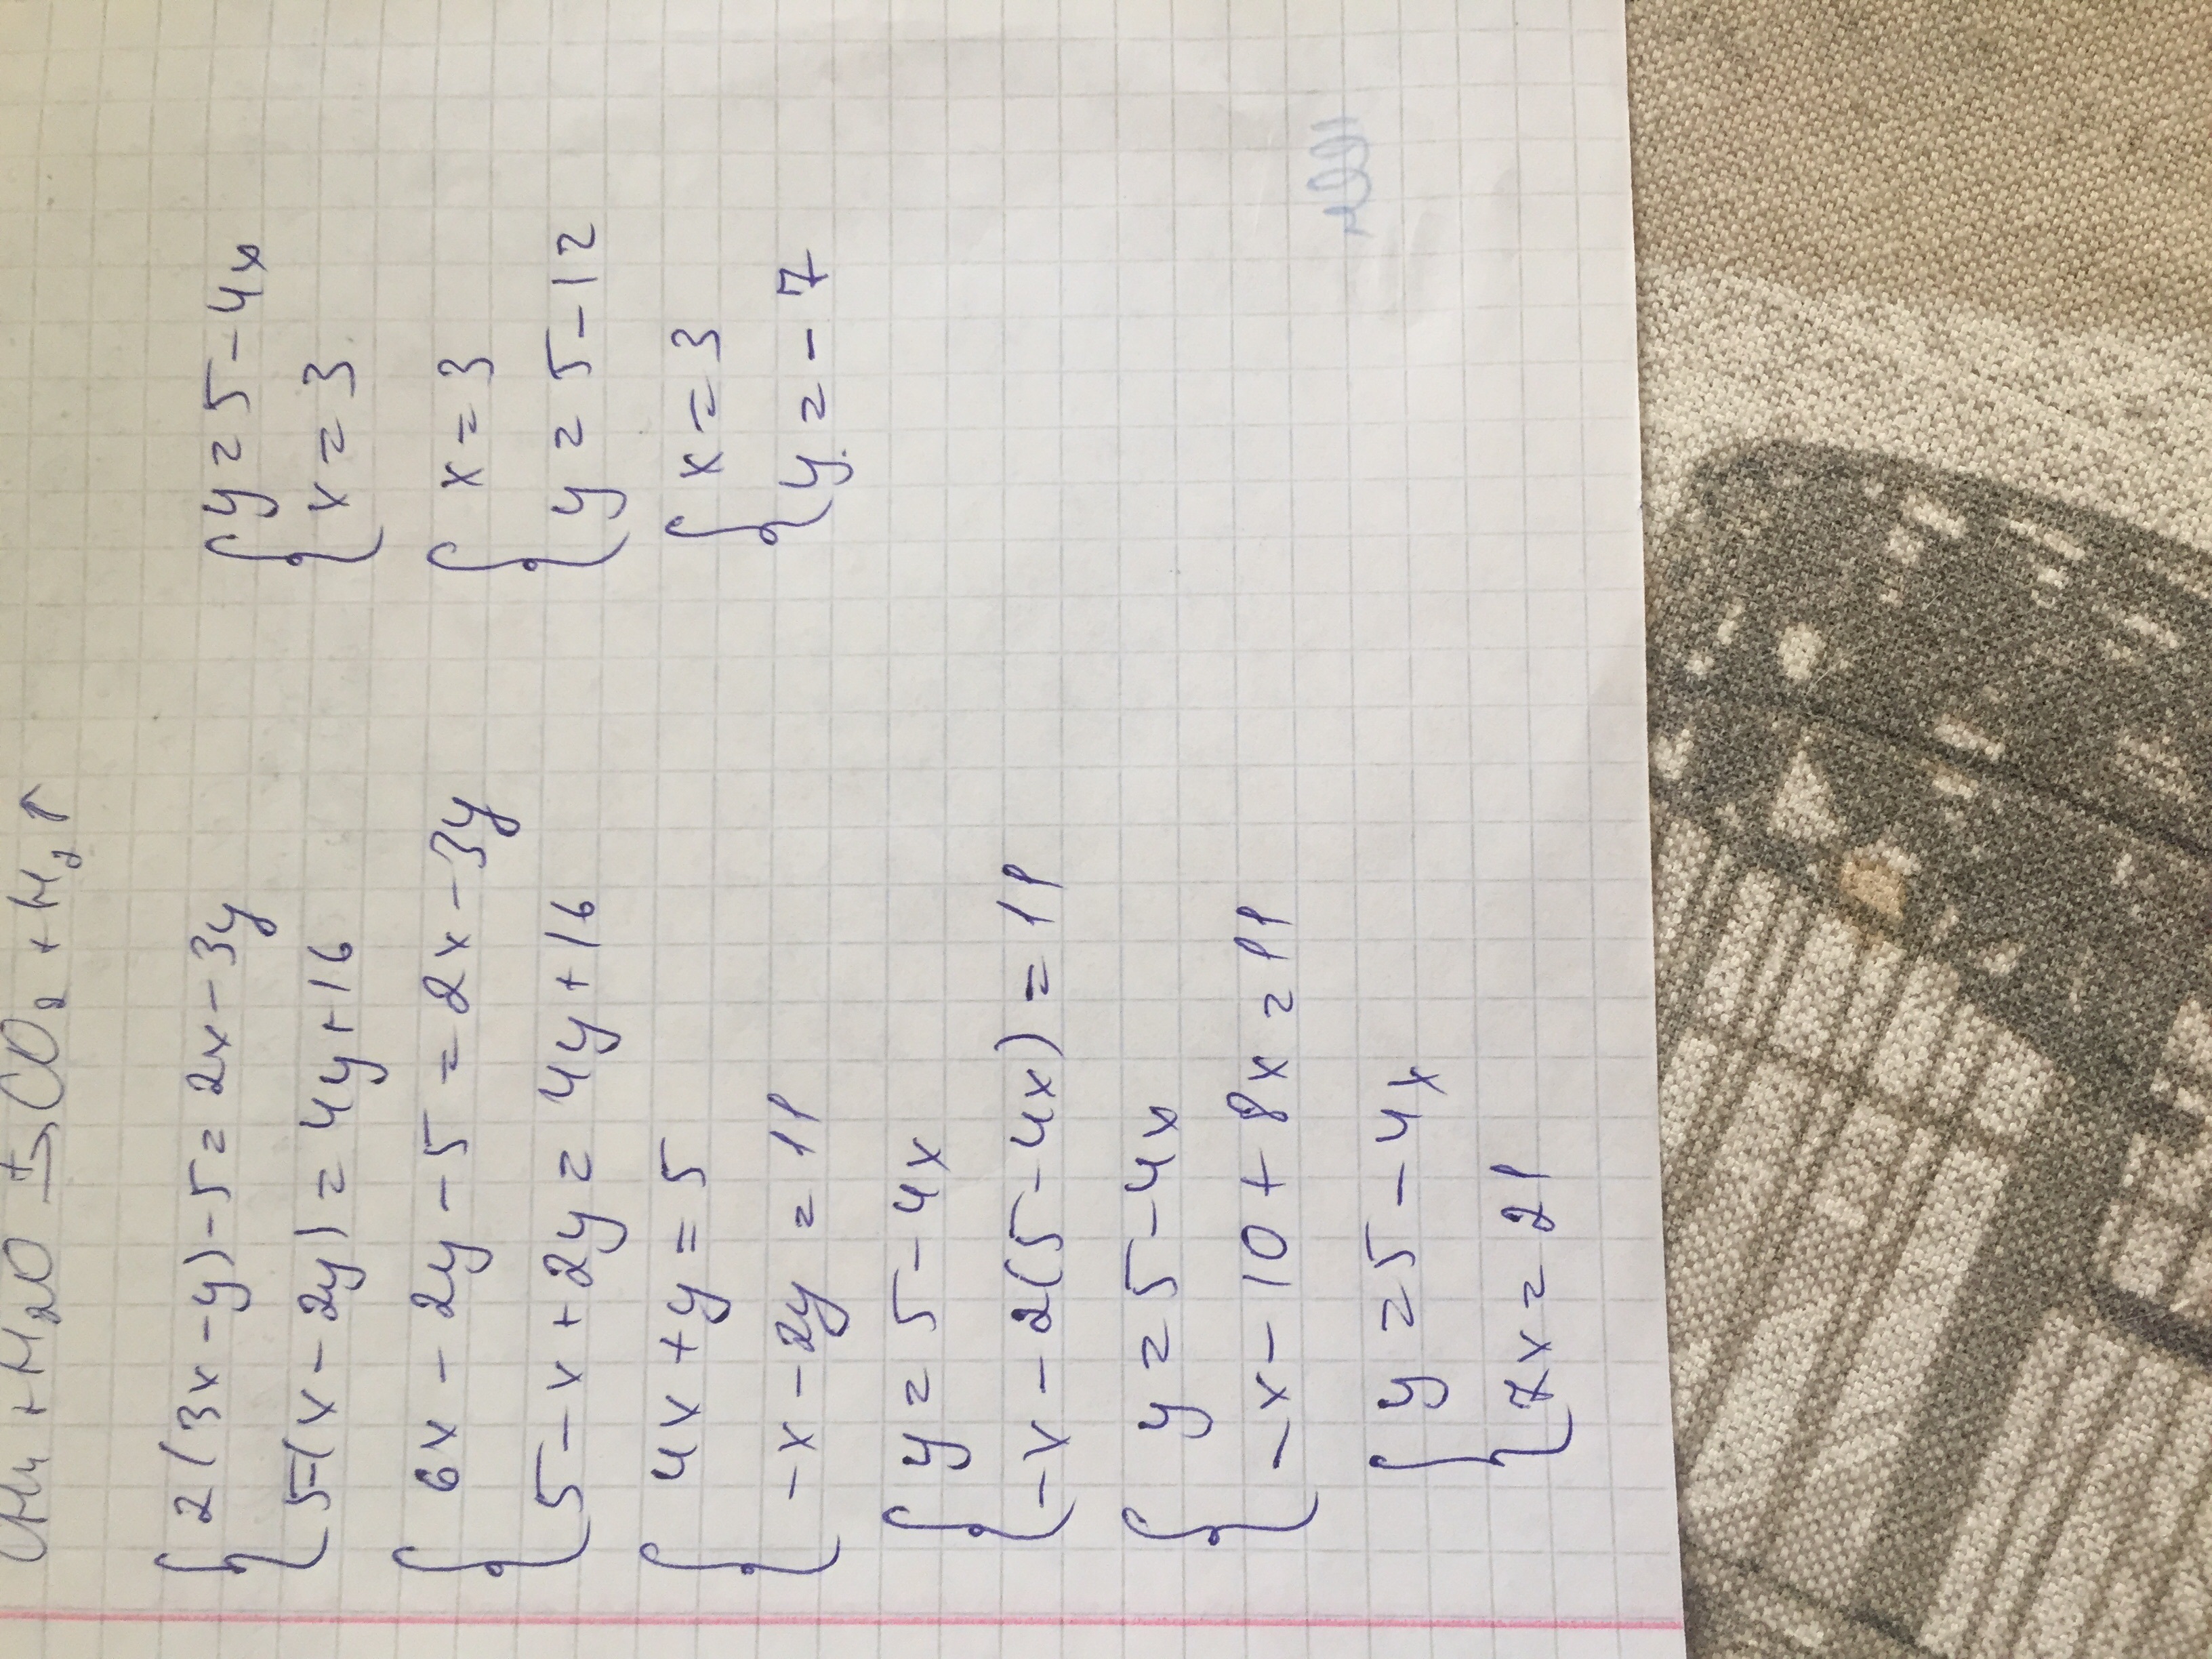 CH₄ + H₂O t→ CO₂ + H₂↑
{2(3x-y)-5=2x-3y
5-(x-2y)=4y+16
{6x-2y-5=2x-3y
5-x+2y=4y+16
{4x+y=5
-x-2y=11
{y=5-4x
-x-2(5-4x)=11
{y=5-4x
-x-10+8x=11
{y=5-4x
7x=21
{y=5-4x
x=3
{x=3
y=5-12
{x=3
y=-7